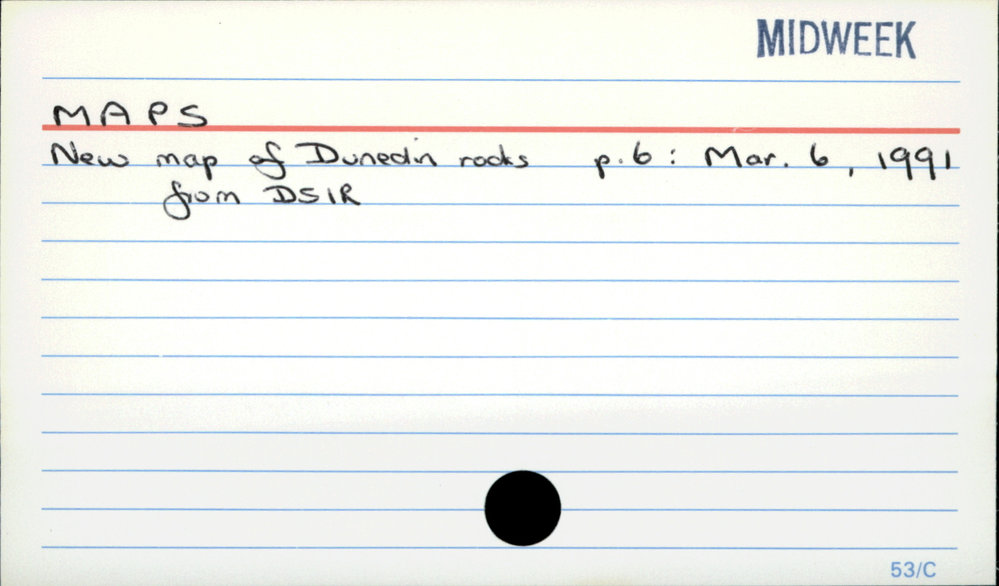 MIDWEEK
MAPS
New map of Dunedin rocks p.6: Mar. 6, 1991
from DSIR
53/C